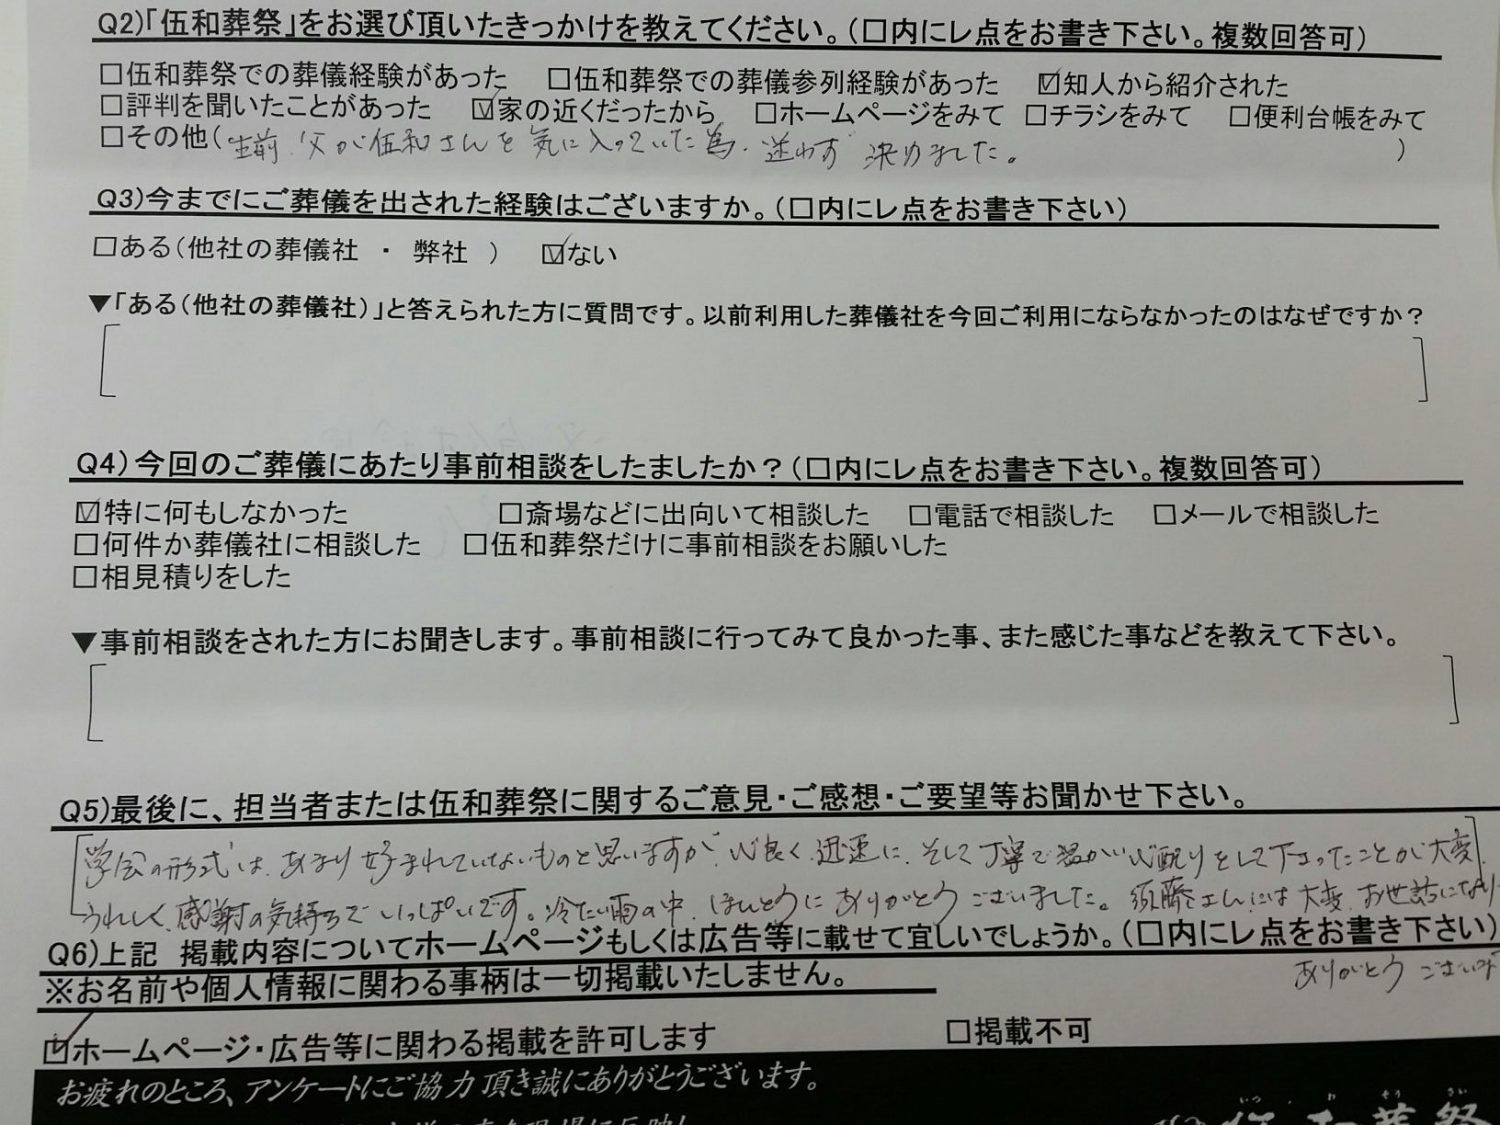 Q2)「伍和葬祭」をお選び頂いたきっかけを教えてください。(□内にレ点をお書き下さい。複数回答可)
□伍和葬祭での葬儀経験があった □伍和葬祭での葬儀参列経験があった ☑知人から紹介された
□評判を聞いたことがあった ☑家の近くだったから □ホームページをみて □チラシをみて □便利台帳をみて
□その他(生前、父が伍和さんを気に入っていた為、迷わず決めました。)
Q3)今までにご葬儀を出された経験はございますか。(□内にレ点をお書き下さい)
□ある(他社の葬儀社 ・ 弊社 ) ☑ない
▼「ある(他社の葬儀社)」と答えられた方に質問です。以前利用した葬儀社を今回ご利用にならなかったのはなぜですか?
Q4)今回のご葬儀にあたり事前相談をしたましたか?(□内にレ点をお書き下さい。複数回答可)
☑特に何もしなかった □斎場などに出向いて相談した □電話で相談した □メールで相談した
□何件か葬儀社に相談した □伍和葬祭だけに事前相談をお願いした
□相見積りをした
▼事前相談をされた方にお聞きします。事前相談に行ってみて良かった事、また感じた事などを教えて下さい。
Q5)最後に、担当者または伍和葬祭に関するご意見・ご感想・ご要望等お聞かせ下さい。
学会の形式は、あまり好まれていないものと思いますが、心良く、迅速に、そして丁寧で温かい心配りをして下さったことが大変
うれしく、感謝の気持ちでいっぱいです。冷たい雨の中、ほんとうにありがとうございました。須藤さんには大変、お世話になり
ありがとうござい
Q6)上記 掲載内容についてホームページもしくは広告等に載せて宜しいでしょうか。(□内にレ点をお書き下さい)
※お名前や個人情報に関わる事柄は一切掲載いたしません。
☑ホームページ・広告等に関わる掲載を許可します □掲載不可
お疲れのところ、アンケートにご協力頂き誠にありがとうございます。
伍和葬祭